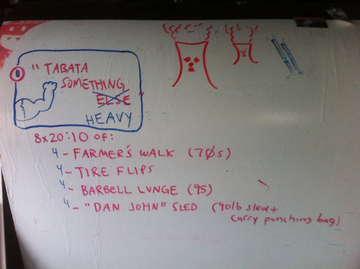 " TABATA
SOMETHING
ELSE "
HEAVY
8x20:10 OF:
4 - FARMER'S WALK (70s)
4 - TIRE FLIPS
4 - BARBELL LUNGE (95)
4 - "DAN JOHN" SLED (90lb sled +
carry punching bag)